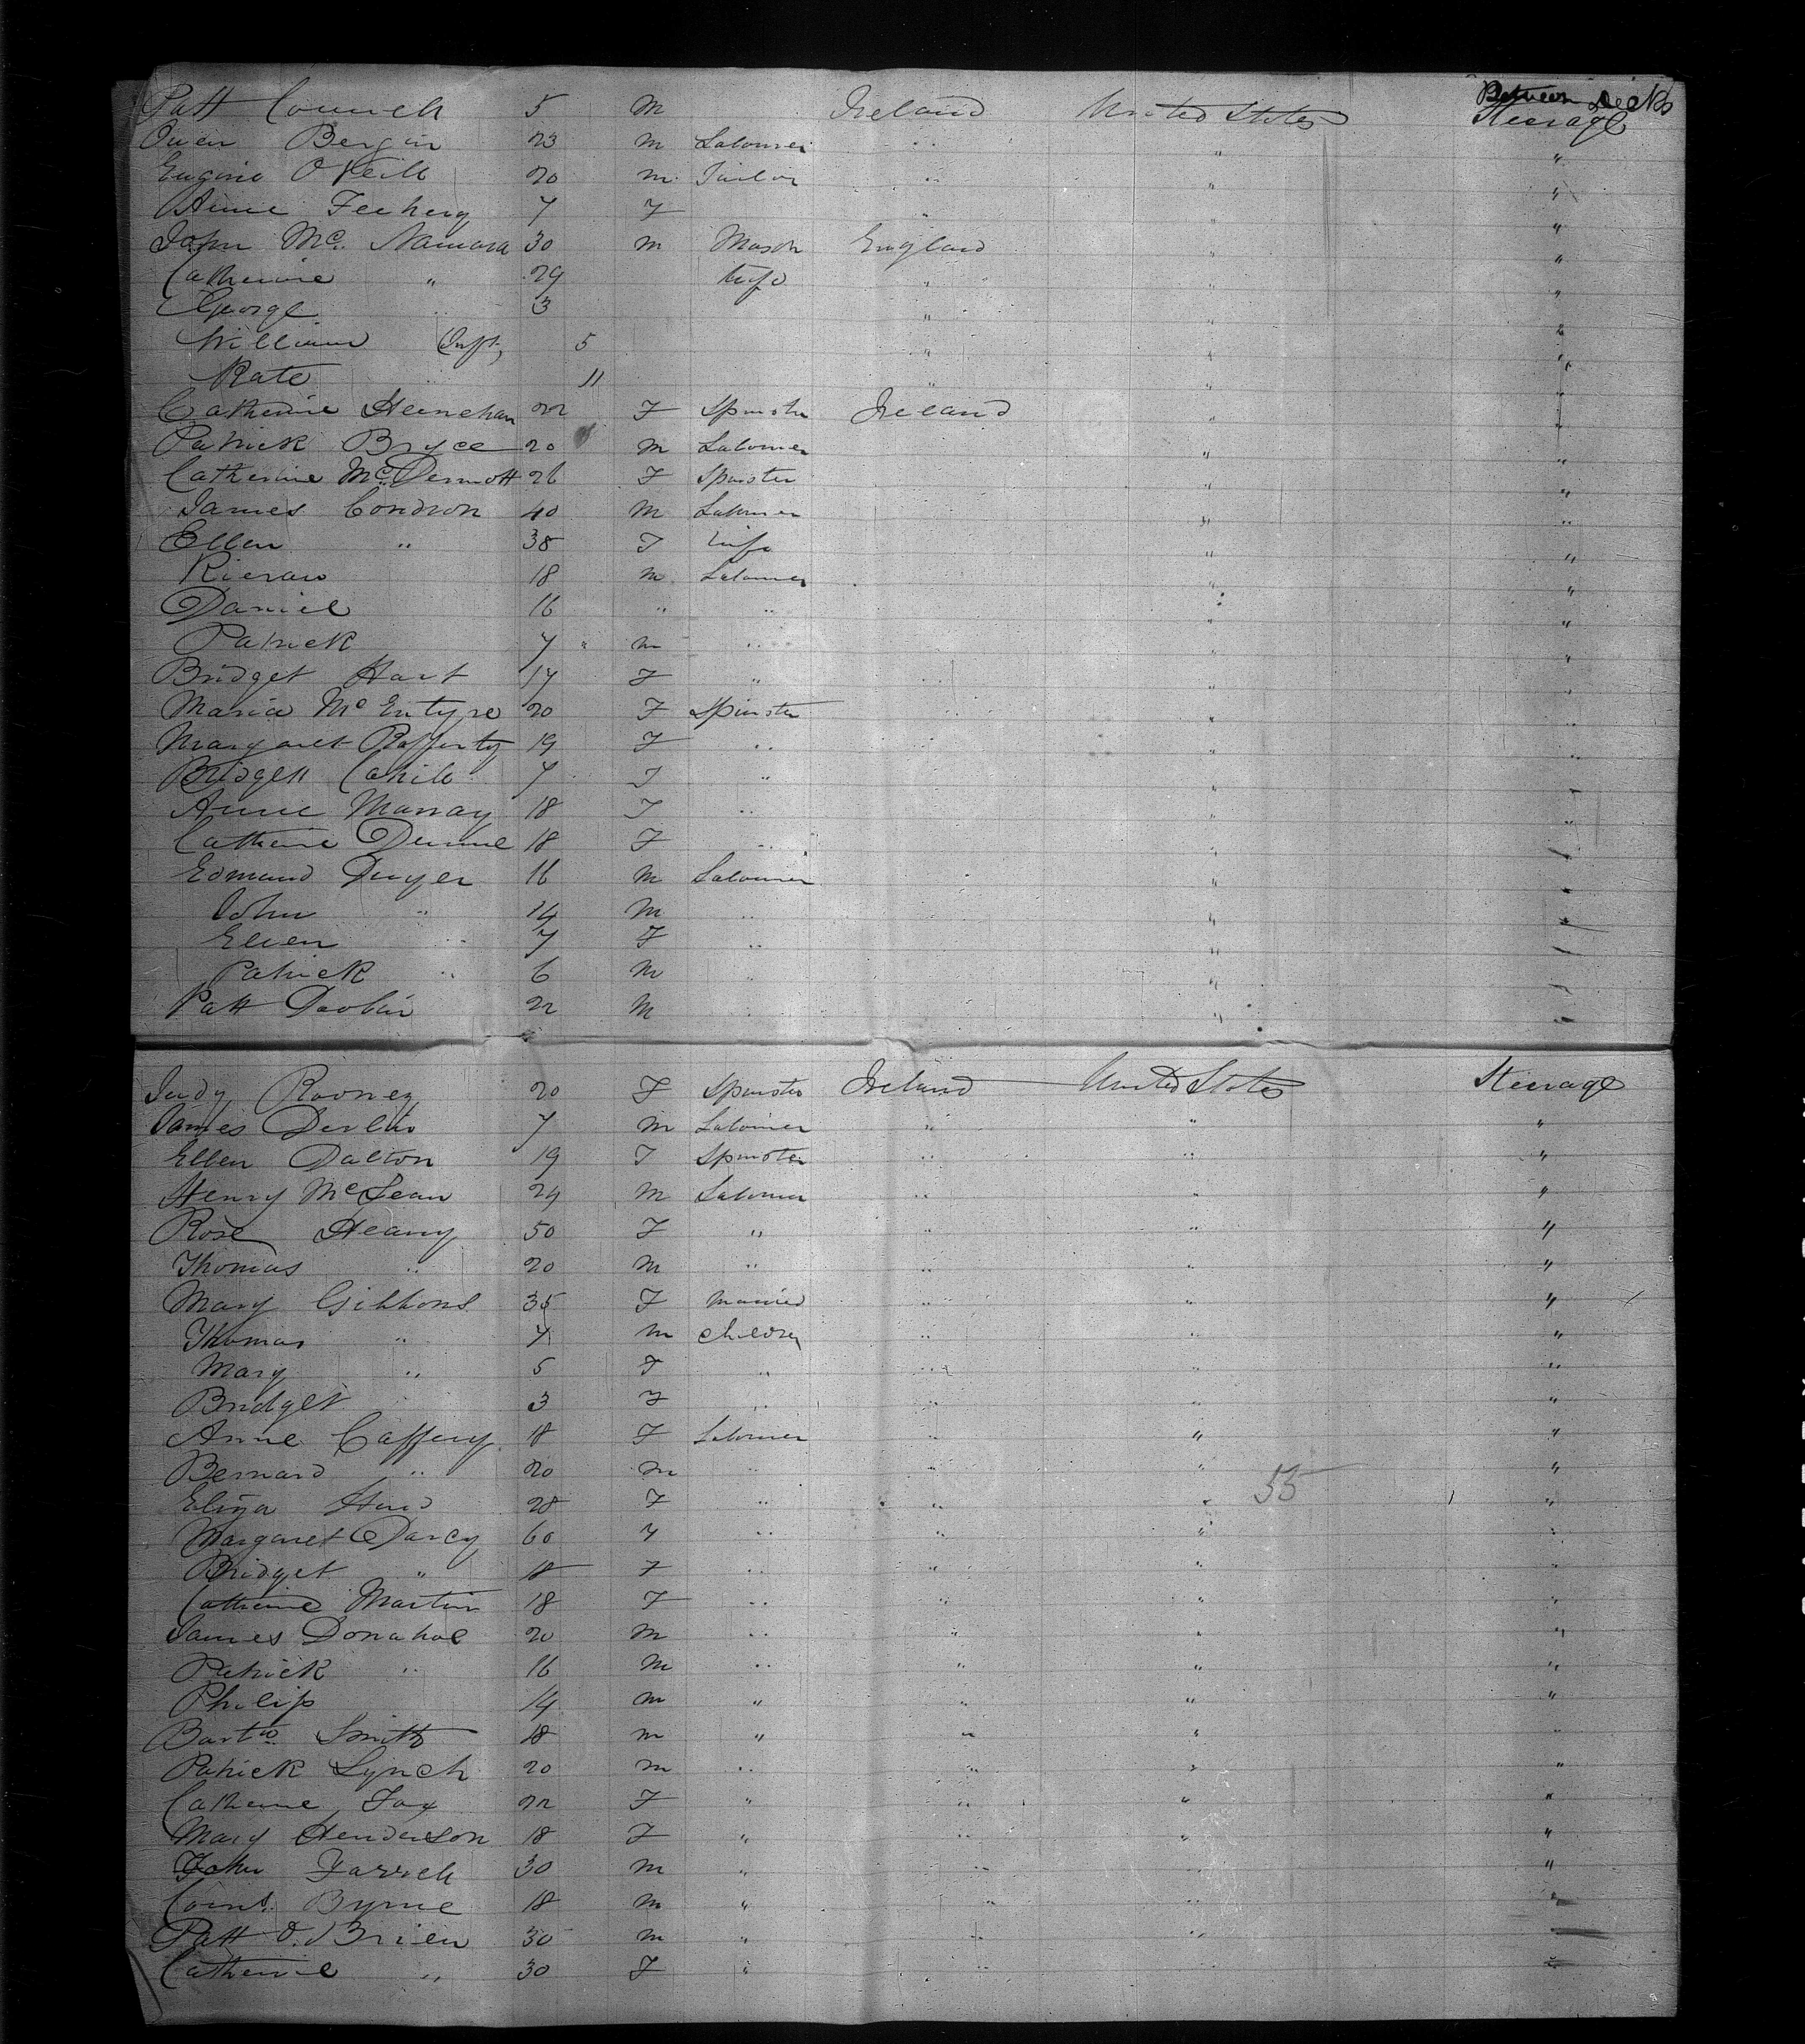 Between Decks
Patt Connell 5 M Ireland United States Steerage
Owen Bergin 23 M Labourer " " "
Eugine O'Neill 20 M Tailor " " "
Anne Feehery 7 F " " "
John Mc. Namara 30 M Mason England " "
Catherine " 29 Wife " " "
George 3 " " "
William (Inft) 5 " " "
Kate 11 " " "
Catherine Heenehan 22 F Spinster Ireland " "
Patrick Bryce 20 M Labourer " "
Catherine McDermott 26 F Spinster " "
James Condron 40 M Labourer " "
Ellen " 38 F Wife " "
Kieran 18 M Labourer " "
Daniel 16 " " " "
Patrick 7 M " " "
Bridget Hart 17 F " " "
Maria McEntyre 20 F Spinster " "
Margaret Rafferty 19 F " " "
Bridgett Cahill 7 F " " "
Anne Murray 18 F " " "
Catherine Dunne 18 F " " "
Edmund Dwyer 16 M Labourer " "
John " 14 M " " "
Ellen " 7 F " " "
Patrick " 6 M " "
Patt Doolan 22 M " "
Judy Rooney 20 F Spinster Ireland United States Steerage
James Devlin 7 M Labourer " " "
Ellen Dalton 19 F Spinster " " "
Henry McLean 24 M Labourer " " "
Rose Heany 50 F " " " "
Thomas " 20 M " " " "
Mary Gibbons 35 F Married " " "
Thomas " 7 M Children " " "
Mary " 5 F " " " "
Bridget " 3 F " " " "
Anne Caffery 18 F Labourer " " "
Bernard " 20 M " " " "
Eliza 28 F " " " 53 "
Margaret Darcy 60 F " " " "
Bridget " 18 F " " " "
Catherine Martin 18 F " " " "
James Donahoe 20 M " " " "
Patrick " 16 M " " " "
Philip 14 M " " " "
Bartw Smith 18 M " " " "
Patrick Lynch 20 M " " " "
Catherine Fox 22 F " " " "
Mary Henderson 18 F " " " "
John Farrell 30 M " " " "
Byrne 18 M " " " "
Patt O.Brien 30 M " " " "
Catherine " 30 F " " " "